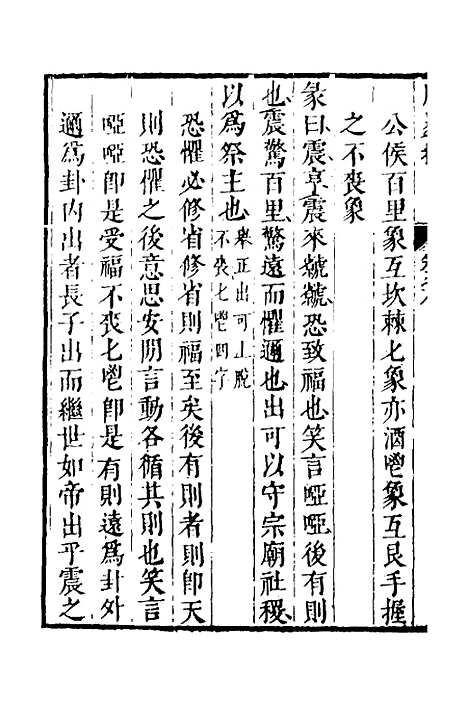 公侯百里象互坎棘匕象亦酒鬯象互艮手握
之不喪象
彖曰震亨震來虩虩恐致福也笑言啞啞後有則
也震驚百里驚遠而懼邇也出可以守宗廟社稷
以爲祭主也舉正出可上脫
不喪匕鬯四字
恐懼必修省修省則福至矣後有則者則卽天
則恐懼之後意思安閒言動各循其則也笑言
啞啞卽是受福不喪匕鬯卽是有則遠爲卦外
邇爲卦內出者長子出而繼世如帝出乎震之